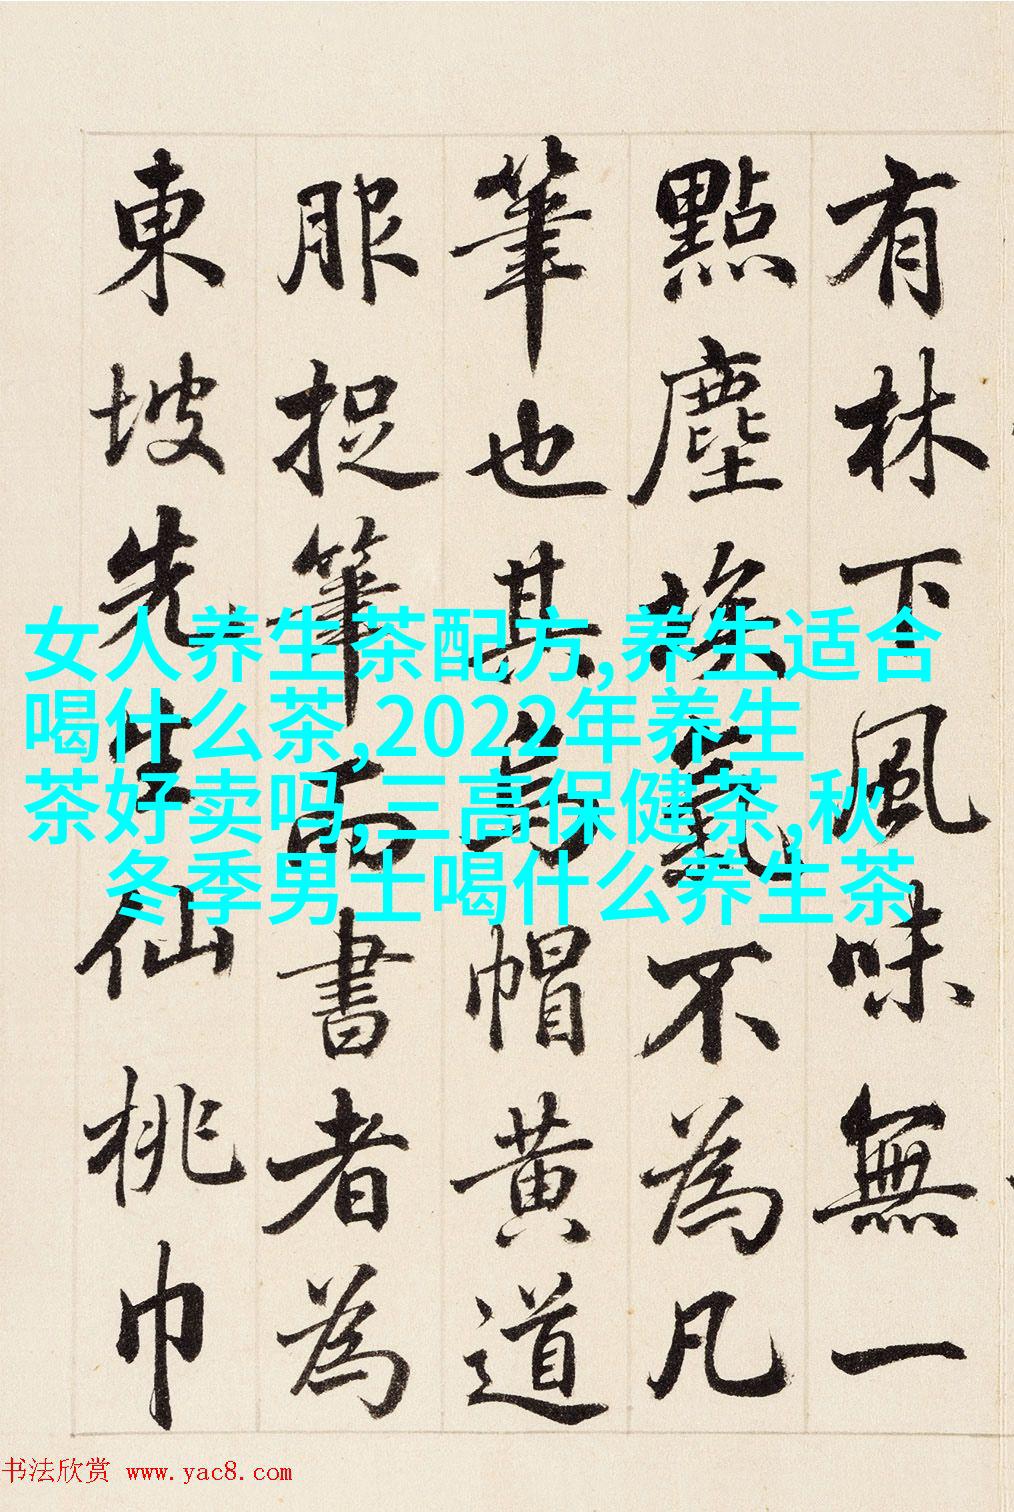 有林下風味無一
點塵埃氣不為凡
筆也其烏帽黃道
服捉筆而書者為
東坡先生仙桃巾
女人养生茶配方,养生适合
喝什么茶,2022年养生
茶好卖吗,三高保健茶,秋
冬季男士喝什么养生茶
书法欣赏 www.yac8.com